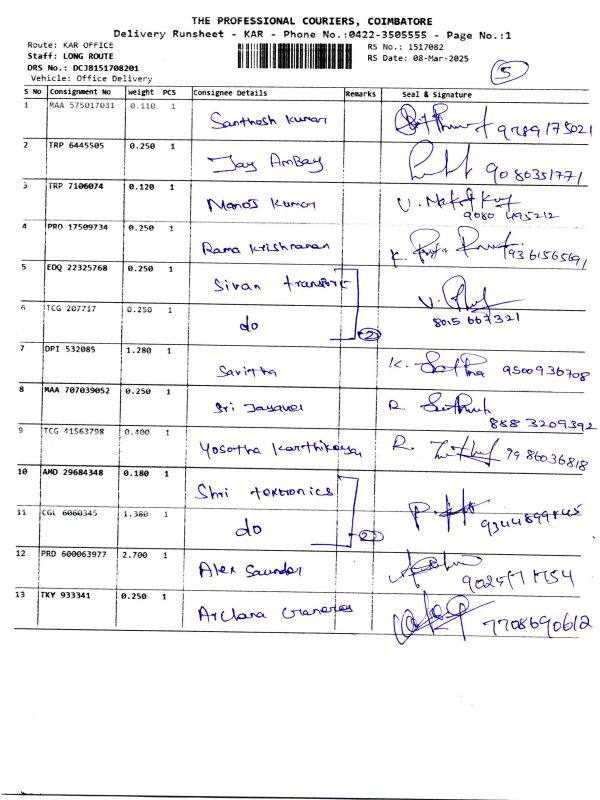 THE PROFESSIONAL COURIERS, COIMBATORE
Delivery Runsheet - KAR - Phone No.:0422-3505555 - Page No.:1
Route: KAR OFFICE RS No.: 1517082
Staff: LONG ROUTE RS Date: 08-Mar-2025
DRS No.: DCJB151708201 5
Vehicle: Office Delivery
S No Consignment No Weight PCS Consignee Details Remarks Seal & Signature
1 MAA 575017031 0.110 1 Santhosh kumar 9789175021
2 TRP 6445505 0.250 1 Jay AmBay 9080351771
3 TRP 7106074 0.120 1 Manoj kumar
9080 495212
4 PRO 17509734 0.250 1 Rama krishnanan 9361565691
5 EDQ 22325768 0.250 1 Sivan transport
6 TCG 207717 0.250 1 do 2 8015 667321
7 DPI 532085 1.280 1 Savitha K. 9500936708
8 MAA 707039052 0.250 1 Sri Jayavel R.
888 3209392
9 TCG 41563798 0.400 1 Yosotha Karthikeyan R. 7986036818
10 AMD 29684348 0.180 1 Shri tektronics
11 CGL 6060345 1.380 1 do 2
12 PRD 600063977 2.700 1 Alex Saundar
13 TKY 933341 0.250 1 Archana 7708690612